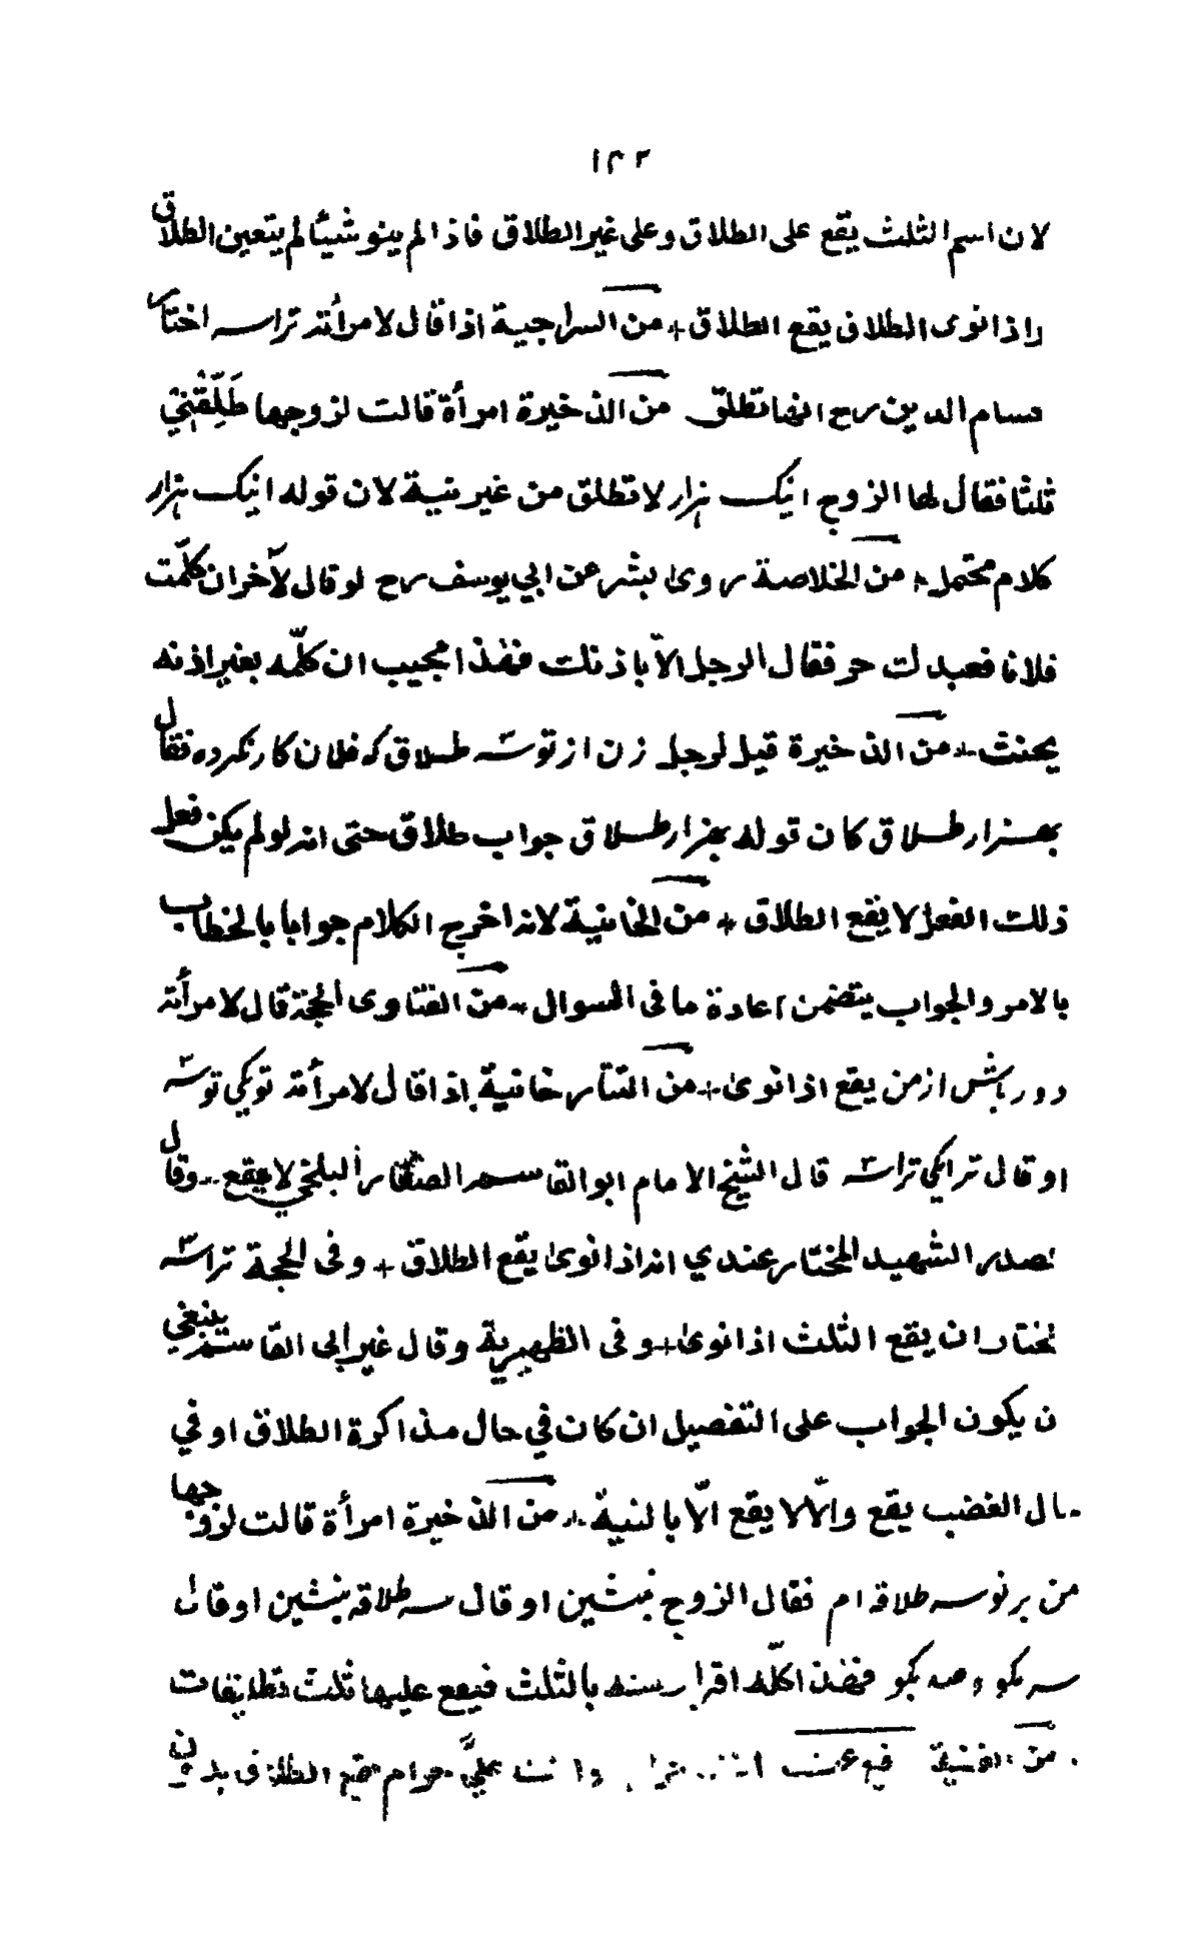 ١٣٢
لان اسم الثلث يقع على الطلاق وعلى غير الطلاق فاذا لم ينو شيئا لم يتعين الطلاق
واذا نوى الطلاق يقع الطلاق + من السراجية اذا قال لامرأته تراسه اختار
حسام الدين رح انها تطلق من الذخيرة امرأة قالت لزوجها طَلِّقْنِيْ
ثلثا فقال لها الزوج اينك هزار لا تطلق من غير نية لان قوله اينك هزار
كلام محتمل + من الخلاصة روى بشر عن ابي يوسف رح لو قال لآخر ان كلّمت
فلانا فعبدك حر فقال الرجل الّا باذنك فهذا مجيب ان كلّمه بغير اذنه
يحنث + من الذخيرة قيل لرجل زن از تو سه طلاق كه فلان كار نكرده فقال
بهزار طلاق كان قوله بهزار طلاق جواب طلاق حتى انه لو لم يكن فعل
ذلك الفعل لا يقع الطلاق + من الخانية لانه اخرج الكلام جوابا بالخطاب
بالامر والجواب يتضمن اعادة ما في السوال + من الفتاوى الحجة قال لامرأته
دور باش از من يقع اذا نوى + من التتارخانية اذا قال لامرأته تويكى توسه
او قال ترايكى تراسه قال الشيخ الامام ابو القاسم الصفار البلخي لا يقع + وقال
لصدر الشهيد المختار عندي انه اذا نوى يقع الطلاق + وفى الحجة تراسه
لمختار ان يقع الثلث اذا نوى + وفى الظهيرية وقال غير ابى القاسم ينبغي
ن يكون الجواب على التفصيل ان كان في حال مذاكرة الطلاق او في
حال الغضب يقع والّا لا يقع الّا بالنية + من الذخيرة امرأة قالت لزوجها
من بر تو سه طلاقه ام فقال الزوج بيشين او قال سه طلاقه بيشين او قال
سه بكو وصد بكو فهذا كلّه اقرار منه بالثلث فيقع عليها ثلث تطليقات
من القنية علَيَّ حرام يقع الطلاق بدون